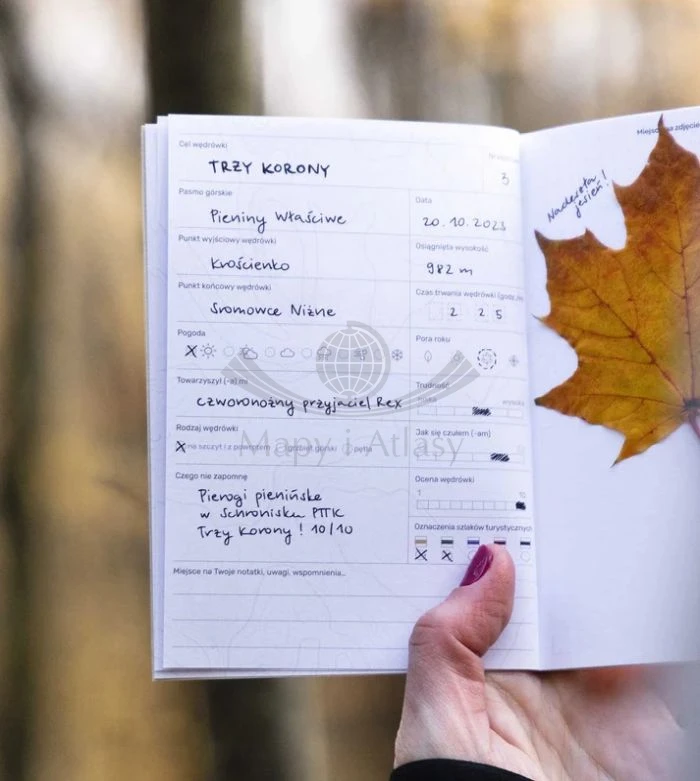 Cel wędrówki
TRZY KORONY
3
Pasmo górskie
Pieniny Właściwe
Data
20.10.2023
Punkt wyjściowy wędrówki
Krościenko
Osiągnięta wysokość
982 m
Punkt końcowy wędrówki
Sromowce Niżne
Czas trwania wędrówki
2 25
Pogoda
Pora roku
Towarzyszył (-a) mi
czworonożny przyjaciel Rex
Trudność
niska
wysoka
Rodzaj wędrówki
na szczyt i z powrotem grzbiet górski pętla
Jak się czułem (-am)
Czego nie zapomnę
Pierogi pienińskie
w Schronisku PTTK
Trzy Korony! 10/10
Ocena wędrówki
1 10
Oznaczenia szlaków turystycznych
Miejsce na Twoje notatki, uwagi, wspomnienia...
Miejsce na zdjęcie
Nadeszła
jesień!
Mapy i Atlasy